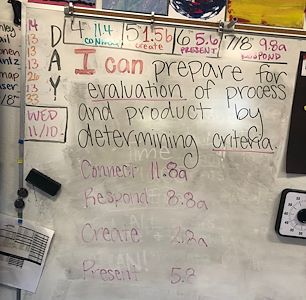 4 11.4 5 1.5b 6 5.6 7/8 9.8a
connect create PRESENT RESPOND
D
A
Y
14
13
13
26
13
33
WED
11/10
I can prepare for
evaluation of process
and product by
determining criteria.
Connect 11.8a
Respond 8.8a
Create 2.2a
Present 5.2